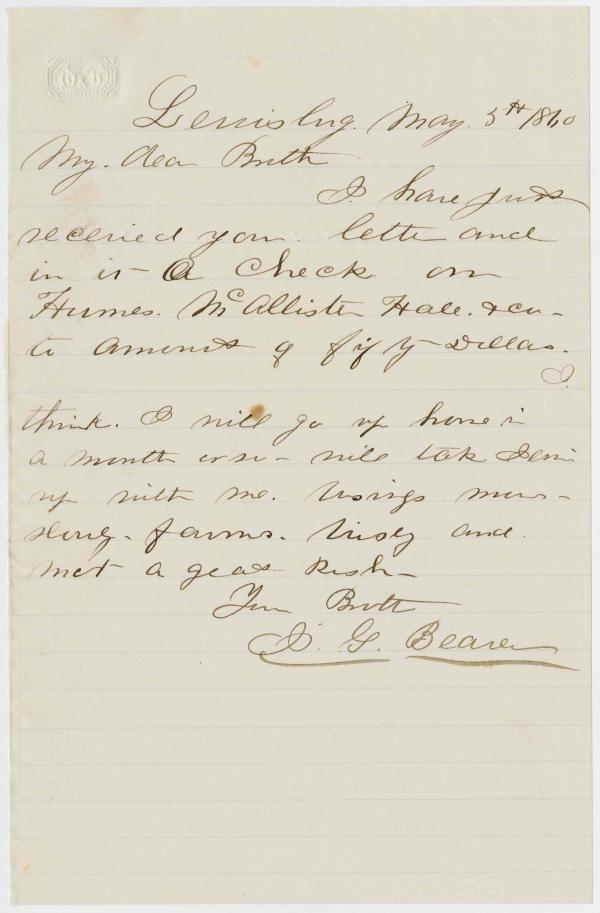 Lewisbg. May. 5th 1860
My. dear Broth
I. have just
received your letter and
in it a Check on
Humes. McAllister Hale. & co-
to amount of fifty Dollars.
I.
think. I will go up home in
a month or so - will take
up with me.
slowly - farms. and
met a great Rush -
Your Broth
J. G. Beaver